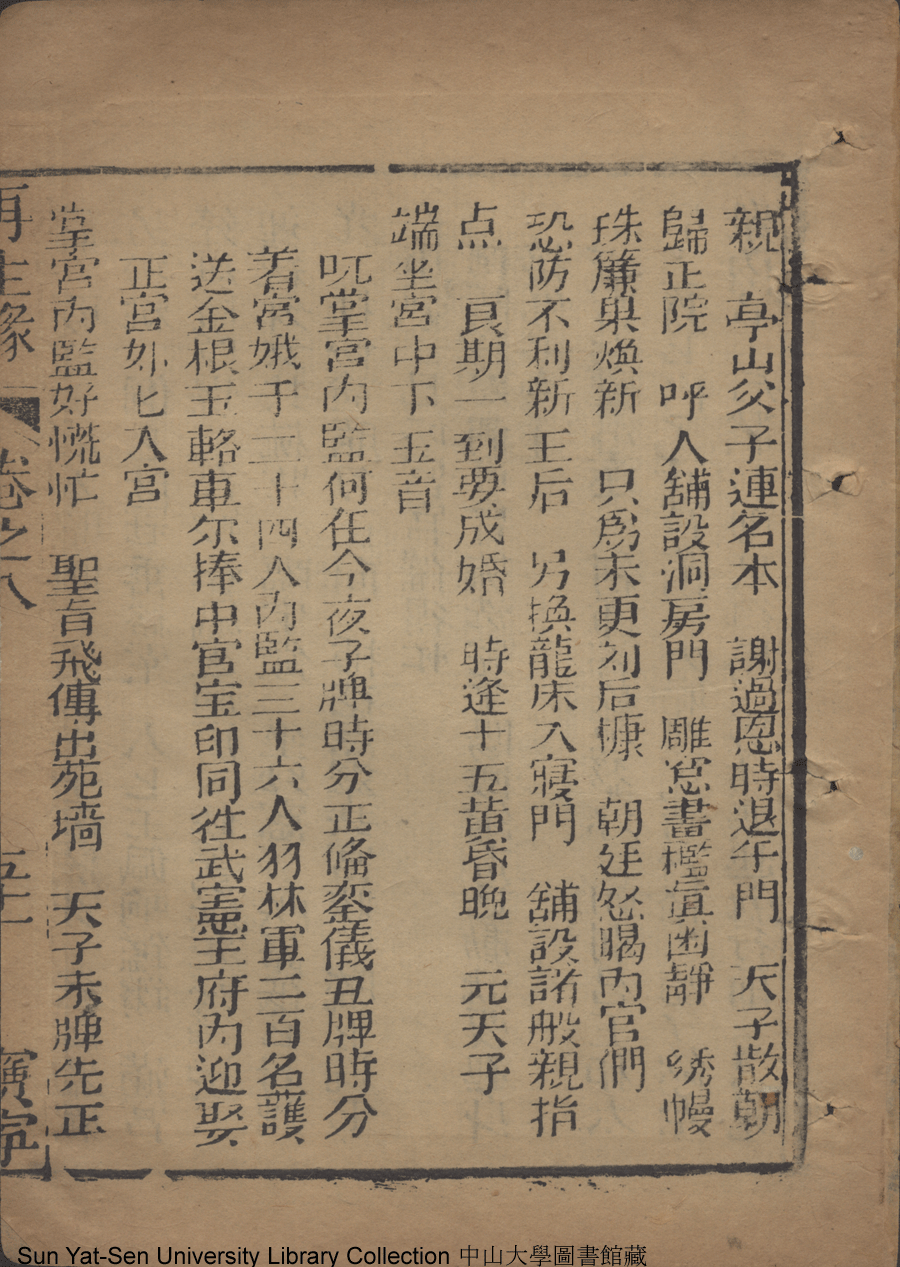 親　亭山父子連名本　謝過恩時退午門　天子散朝
歸正院　呼人舖設洞房門　雕窓畫檻真幽靜　绣幔
珠簾巢煥新　只爲未更刘后槺　朝廷怒暍内官們
恐防不利新王后　另換龍床入寢門　舖設諸般親指
点　艮期一到要成婚　時逢十五黄昏晚　元天子
端坐宮中下玉音
叹掌宮内監何任今夜子牌時分正脩奎儀丑牌時分
着宮娥千二十四人内監三十六人羽林軍二百名護
送金根玉輅車尔捧中官宝印同往武憲王府内迎娶
正宮如七入宮
掌宮内監好慌忙　聖旨飛傳出苑墙　天子未牌先正
再生緣　卷之八　五十一　寳寕
Sun Yat-Sen University Library Collection 中山大學圖書館藏